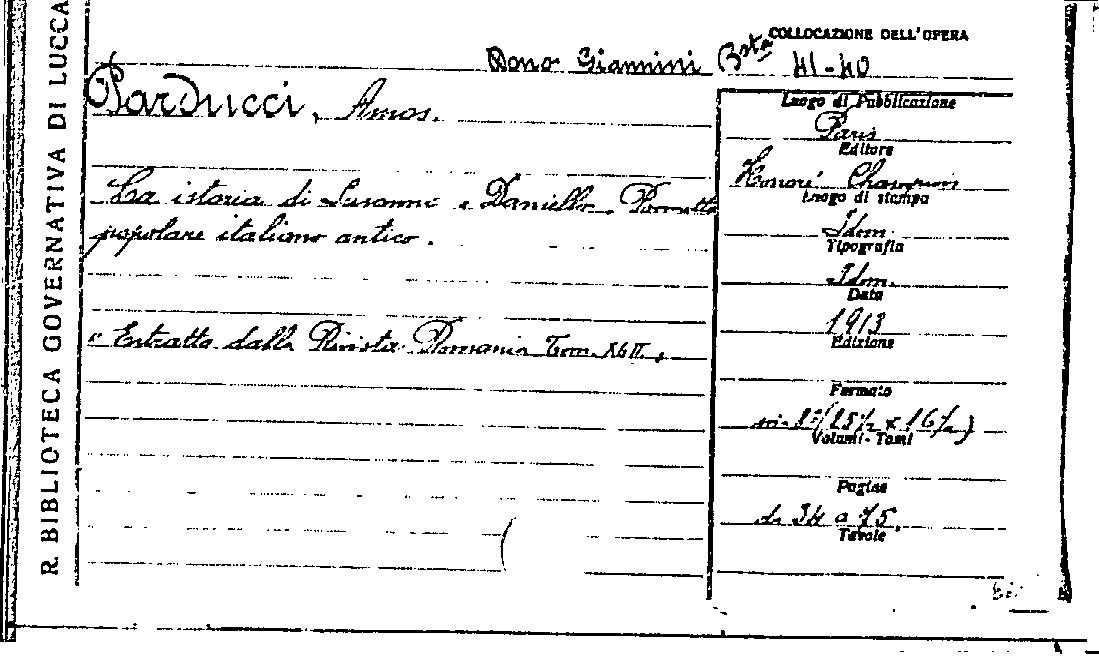 R. BIBLIOTECA GOVERNATIVA DI LUCCA
COLLOCAZIONE DELL'OPERA
Dono Giannini Bsta 41-40
Parducci, Amos.
La istoria di Susanna e Daniello. Poemetto
popolare italiano antico.
"Estratto dalla Rivista Romania Tom. XLII,
Luogo di Pubblicazione
Paris
Editore
Honoré Champion
Luogo di stampa
Idem
Tipografia
Idem.
Data
1913
Edizione
Formato
in-8°(25½ x 16½)
Volumi-Tomi
Pagine
da 34 a 75.
Tavole